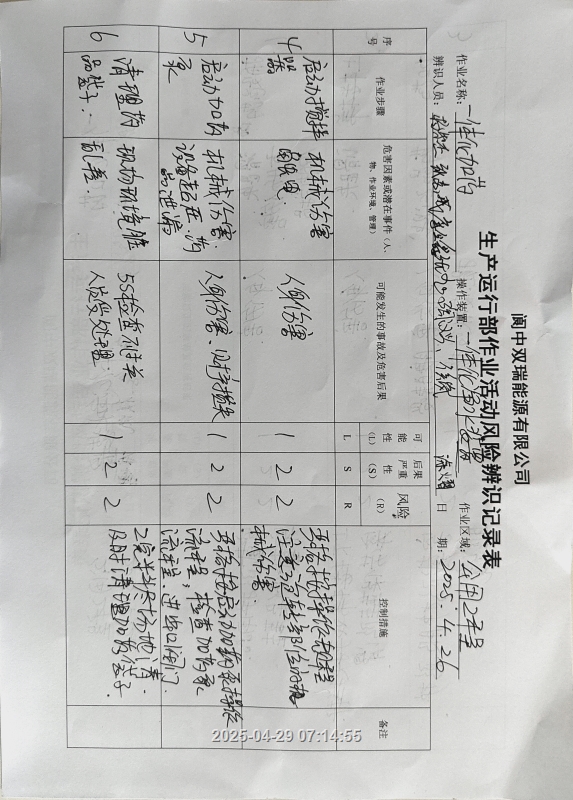 阆中双瑞能源有限公司
生产运行部作业活动风险辨识记录表
作业名称：一体化加药 操作装置：一体化 作业区域：公用工程
辨识人员： 日期：2025.4.26
序号 作业步骤 危害因素或潜在事件（人、物、作业环境、管理） 可能发生的事故及危害后果 可能性（L） 后果严重性（S） 风险（R） 控制措施 备注
L S R
4 启动搅拌器 机械伤害 人身伤害 1 2 2 严格按操作规程 注意运转部位的机械伤害
5 启动加药泵 机械伤害：设备超压、药品泄漏 人身伤害、财产损失 1 2 2 严格按启动加药泵操作流程，检查加药泵流程、进出口阀门
6 清理药品袋子. 现场环境脏乱差. 5S检查不过关 人员受处理. 1 2 2 工完料尽场地清. 及时清理加药袋子.
2025-04-29 07:14:55